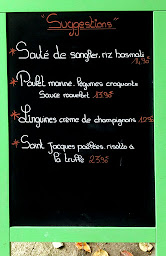 "Suggestions"
* Sauté de sanglier, riz basmati
* Poulet mariné, légumes croquants
Sauce roquefort
* Linguines crème de champignons
* Saint Jacques poêlées, risotto à
la truffe 23€